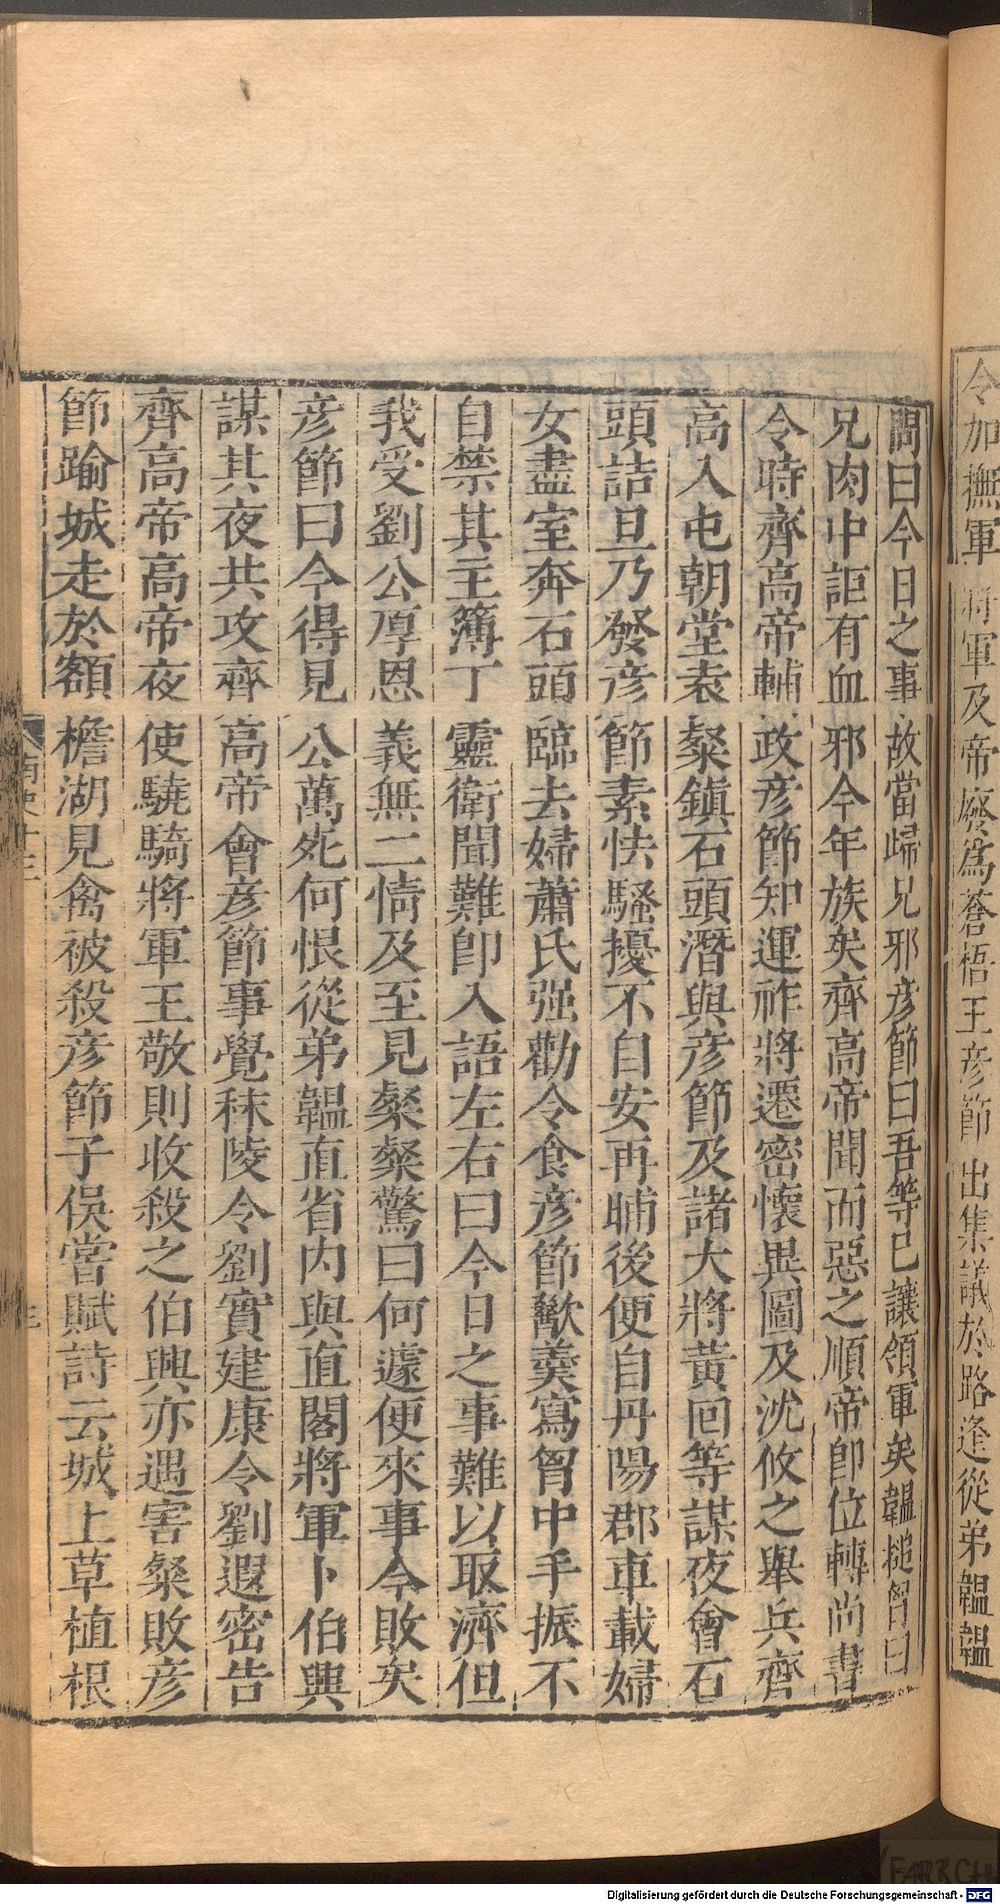 令加撫軍將軍及帝廢爲蒼梧王彦節出集議於路逢從弟韞韞
問曰今日之事故當歸兄邪彦節曰吾等已讓領軍矣韞搥胷曰
兄肉中詎有血邪今年族矣齊高帝聞而惡之順帝卽位轉尚書
令時齊高帝輔政彦節知運祚將遷密懷異圖及沈攸之舉兵齊
高入屯朝堂袁粲鎮石頭潛與彦節及諸大將黄回等謀夜會石
頭詰旦乃發彦節素怯騷擾不自安再晡後便自丹陽郡車載婦
女盡室奔石頭臨去婦蕭氏强勸令食彦節歠羹寫胷中手振不
自禁其主簿丁靈衛聞難卽入語左右曰今日之事難以取濟但
我受劉公厚恩義無二情及至見粲粲驚曰何遽便來事今敗矣
彦節曰今得見公萬死何恨從弟韞直省内與直閤將軍卜伯興
謀其夜共攻齊高帝會彦節事覺秣陵令劉實建康令劉遐密告
齊高帝高帝夜使驍騎將軍王敬則收殺之伯興亦遇害粲敗彦
節踰城走於額檐湖見禽被殺彦節子俁嘗賦詩云城上草植根
南史十三
Digitalisierung gefördert durch die Deutsche Forschungsgemeinschaft - DFG